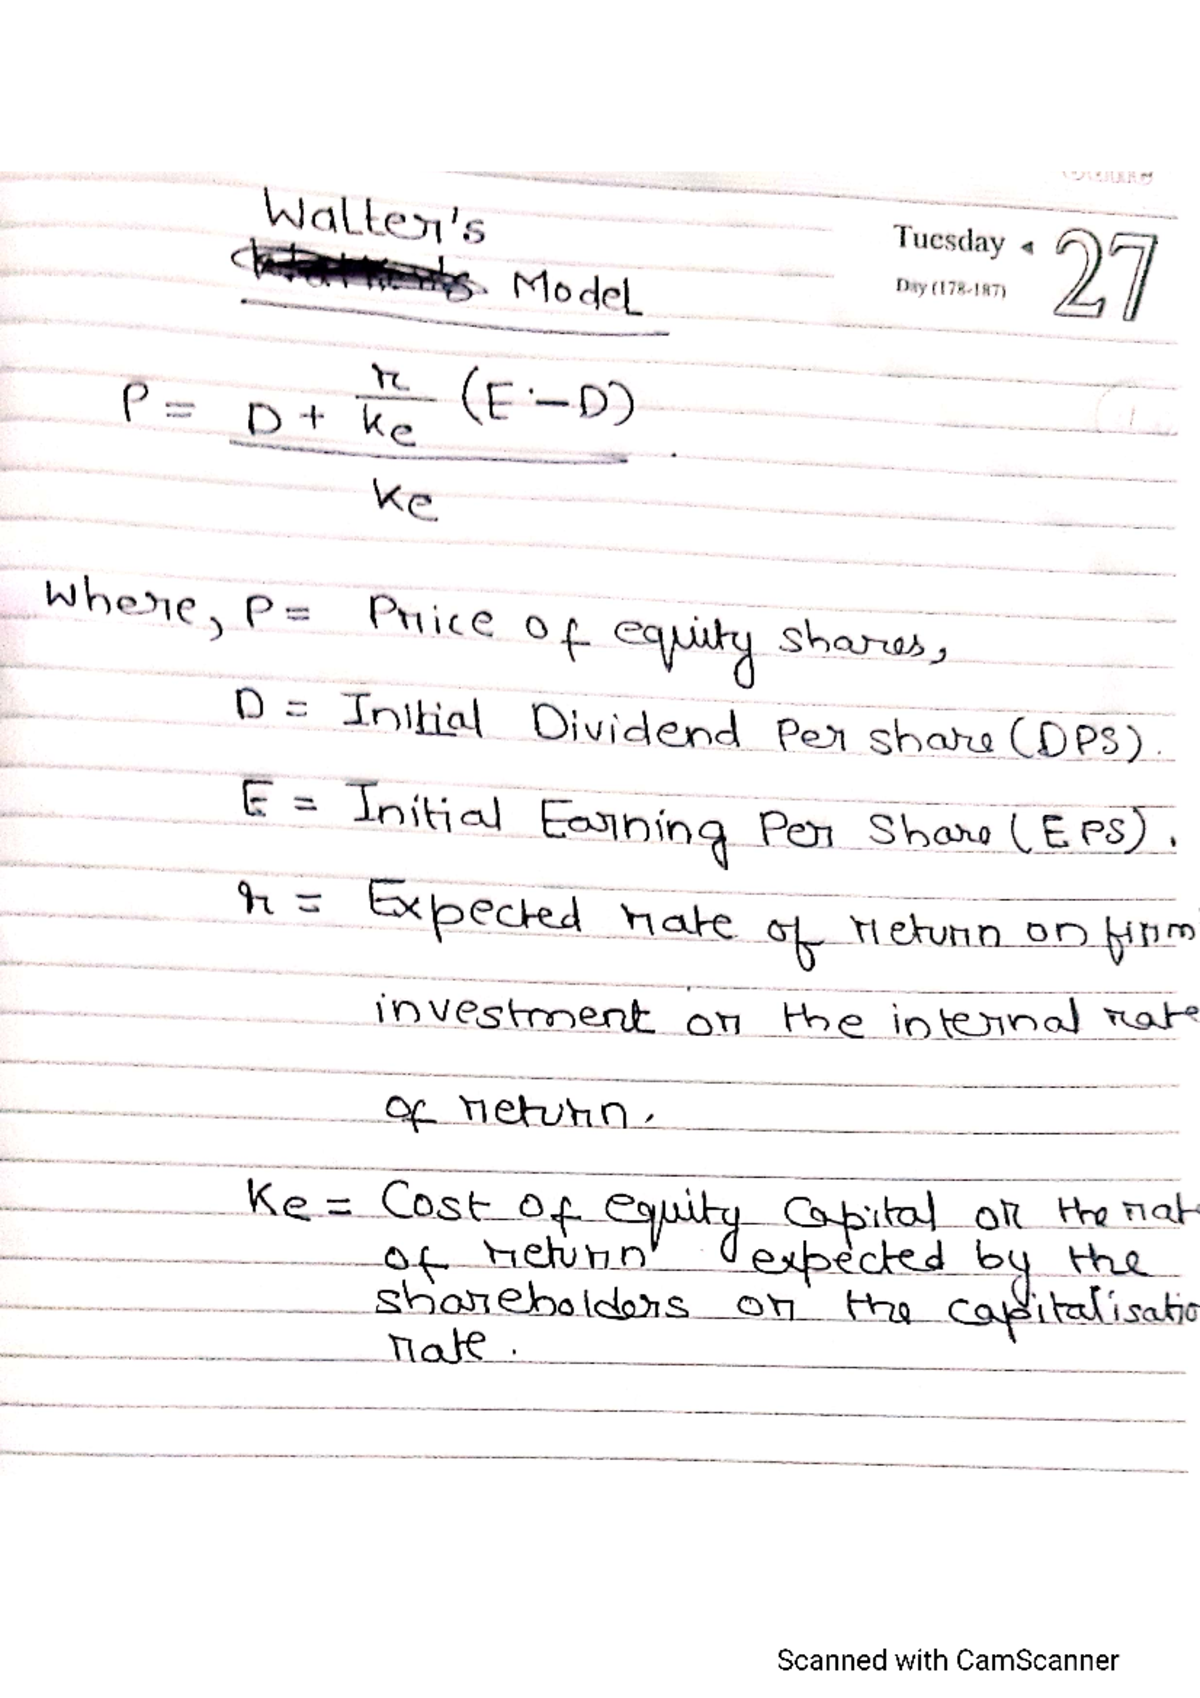 Walter's
Model
Tuesday
27
Day (178-187)
P = D + r/ke (E - D)
ke
where, P = Price of equity shares,
D = Initial Dividend Per share (DPS).
E = Initial Earning Per Share (EPS).
r = Expected rate of return on firm
investment or the internal rate
of return.
Ke = Cost of equity Capital or the rat
of return expected by the
shareholders or the capitalisatio
rate.
Scanned with CamScanner